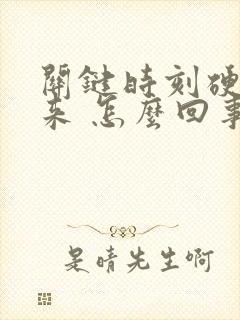 關鍵時刻硬
來 怎麼回事
是晴先生啊